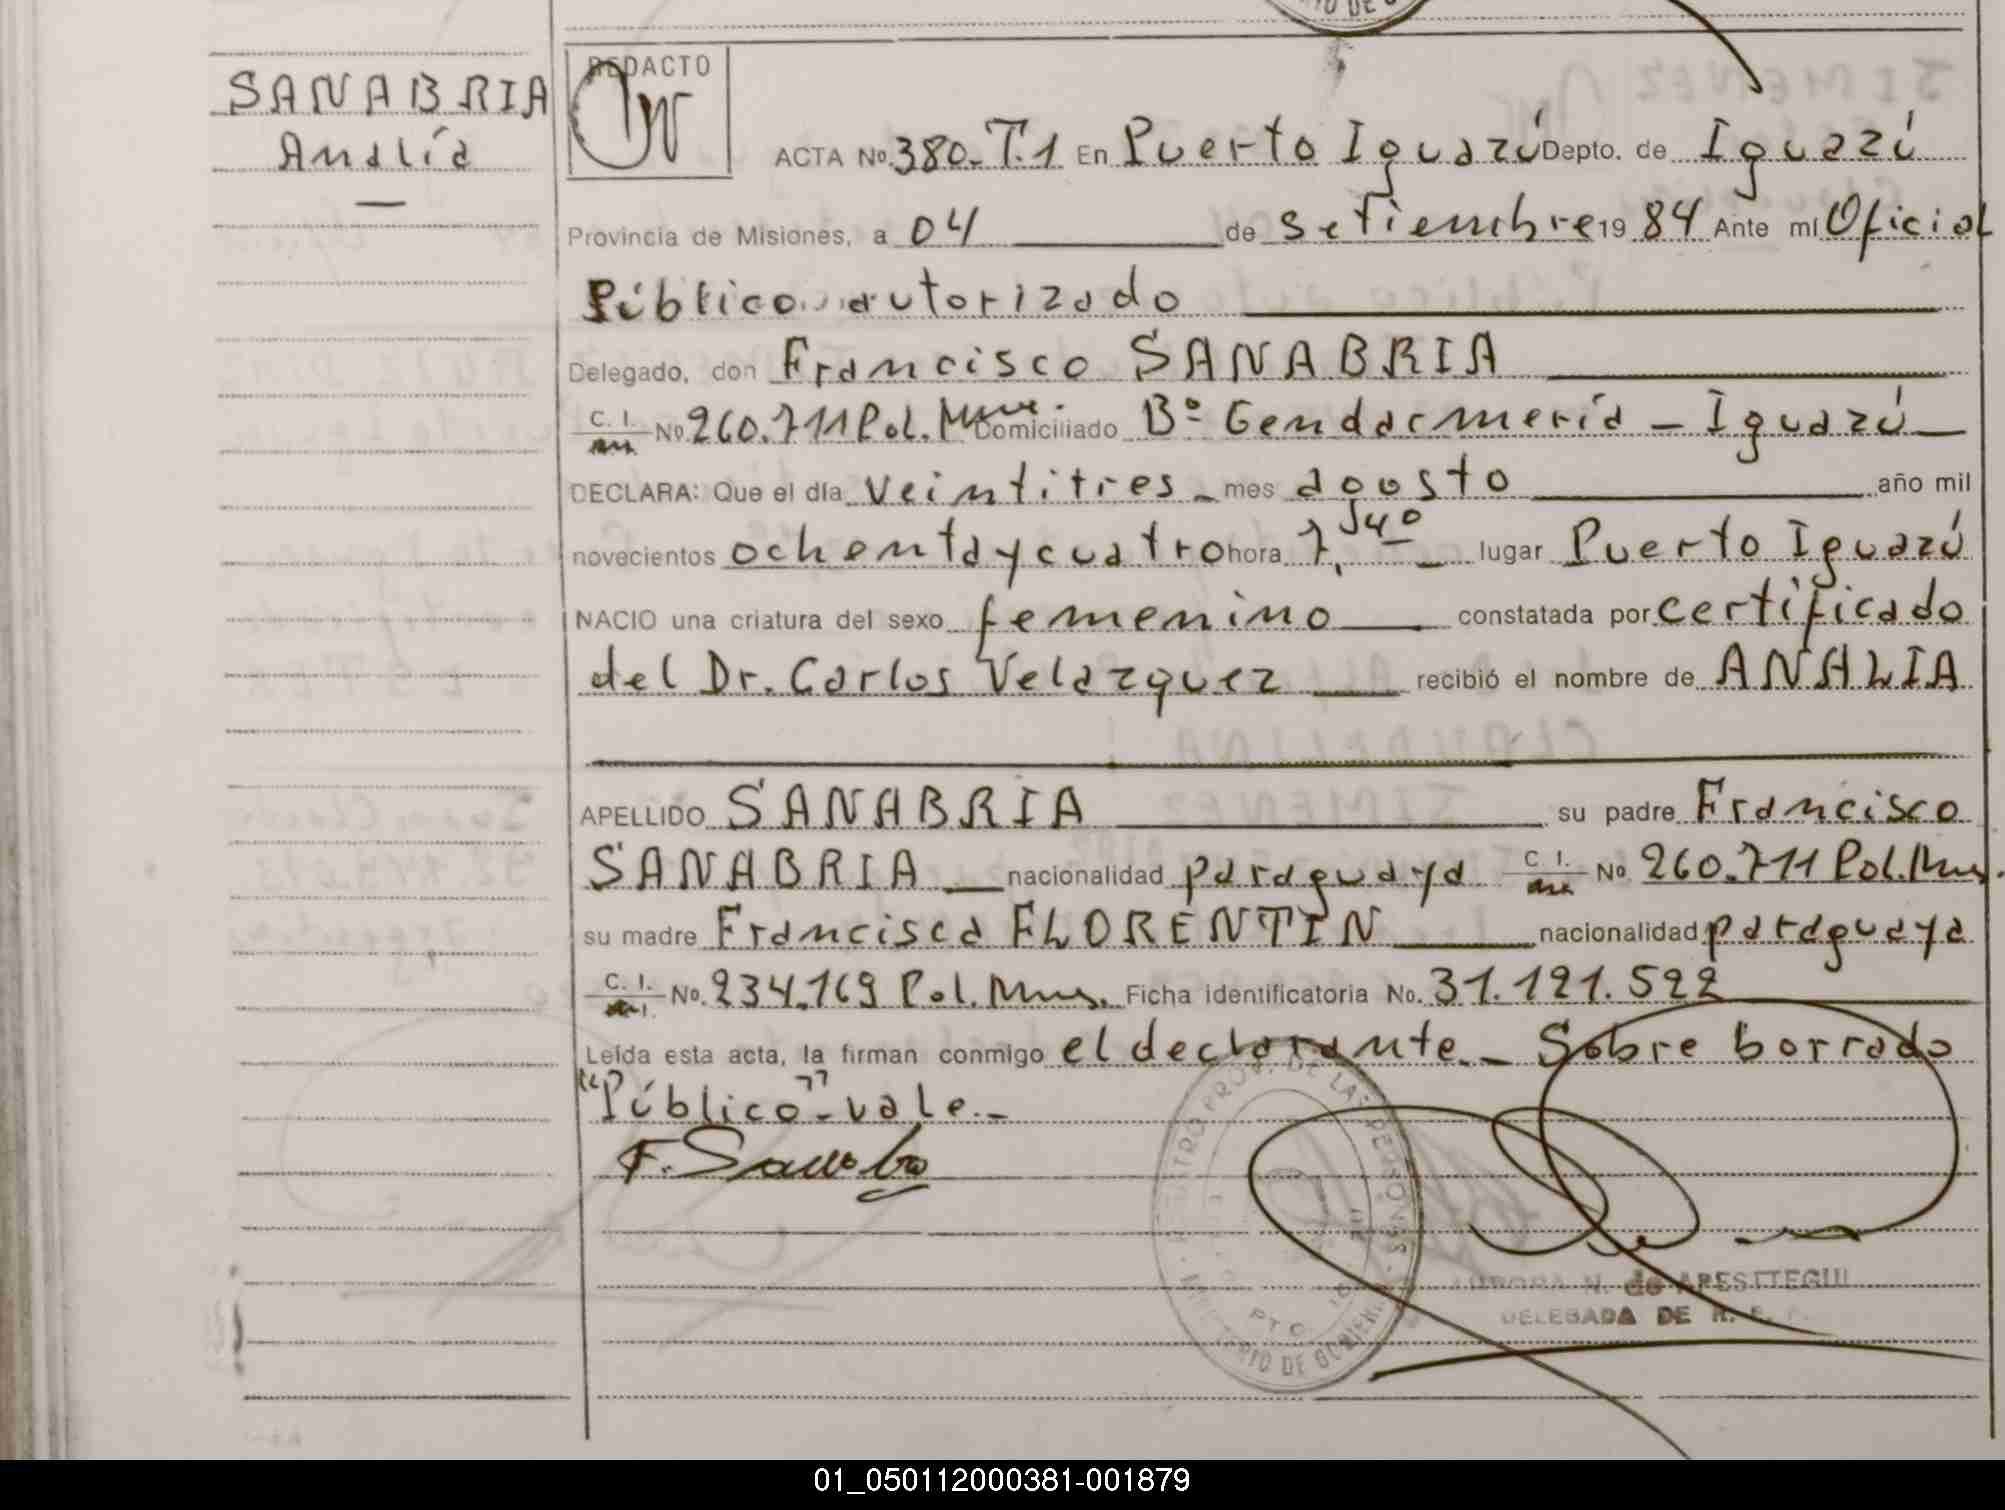 SANABRIA
Analía
REDACTO
ACTA No. 380. T.1 En Puerto Iguazú Depto. de Iguazú
Provincia de Misiones, a 04 de setiembre 19 84 Ante mí Oficial
Público autorizado
Delegado, don Francisco SANABRIA
C. I. No 260.711 Pol. Mnes. Domiciliado Bº Gendarmería - Iguazú
DECLARA: Que el día veintitres mes agosto año mil
novecientos ochenta y cuatro hora 7,40 lugar Puerto Iguazú
NACIO una criatura del sexo femenino constatada por certificado
del Dr. Carlos Velazquez recibió el nombre de ANALIA
APELLIDO SANABRIA su padre Francisco
SANABRIA nacionalidad paraguaya C. I. No 260.711 Pol. Mns.
su madre Francisca FLORENTIN nacionalidad paraguaya
C. I. No. 234.169 Pol. Mns. Ficha identificatoria No. 31.121.522
Leída esta acta, la firman conmigo el declarante.- Sobre borrado
"Público" - vale.-
de ARESTTEGUI
DELEGADA DE R.
01_050112000381-001879